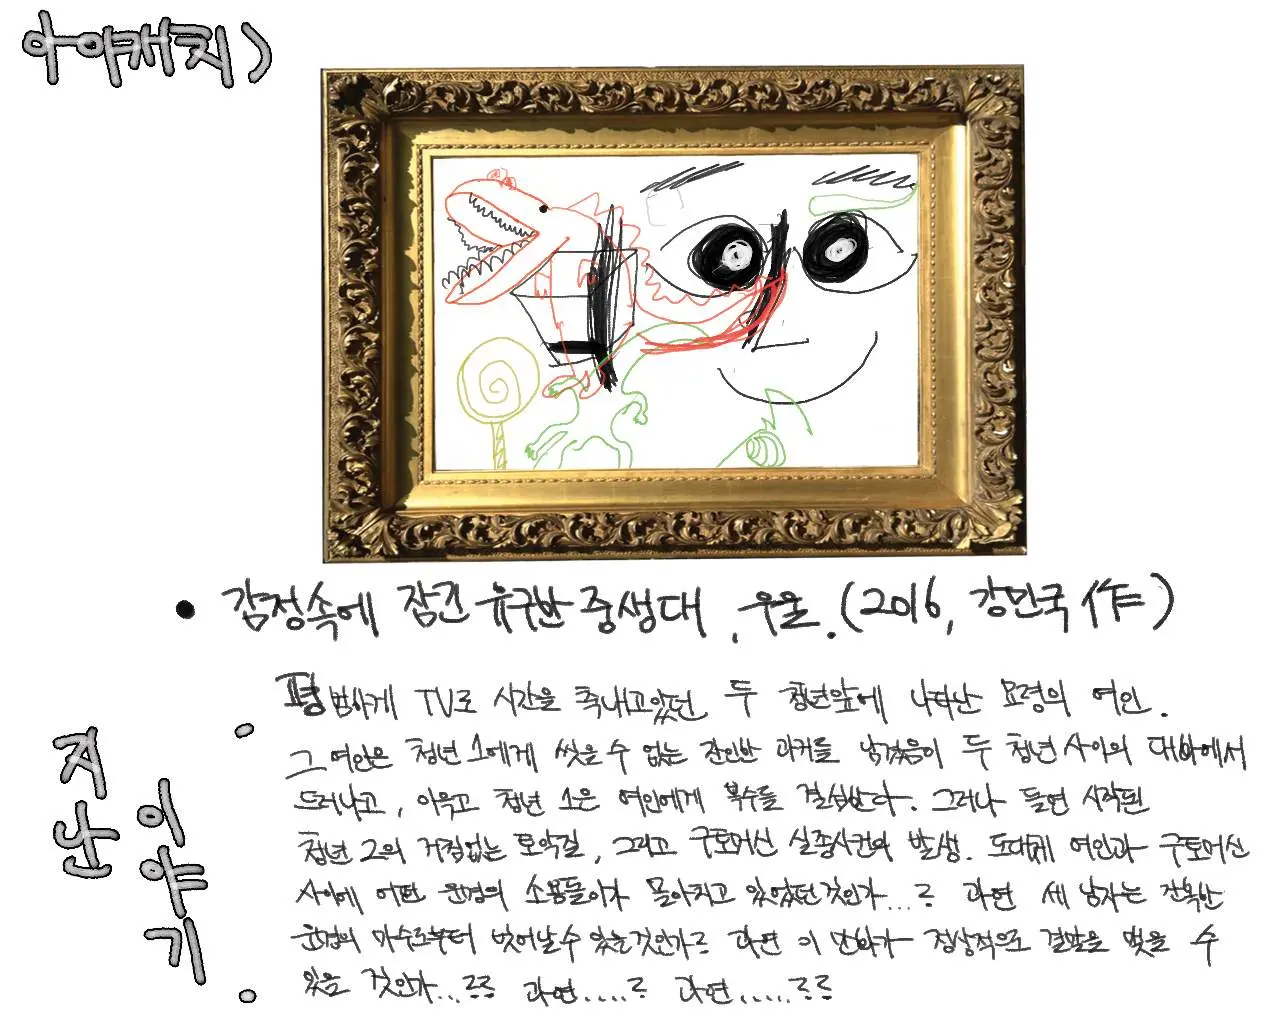 아야캐치)
• 감정속에 잠긴 유구한 중생대, 우울. (2016, 강민국 作)
지난 이야기
평범하게 TV로 시간을 축내고있던 두 청년앞에 나타난 묘령의 여인.
그 여인은 청년 1에게 씻을 수 없는 잔인한 과거를 남겼음이 두 청년 사이의 대화에서
드러나고, 이윽고 청년 1은 여인에게 복수를 결심한다. 그러나 돌연 시작된
청년 2의 거침없는 토악질, 그리고 구토머신 실종사건의 발생. 도대체 여인과 구토머신
사이에 어떤 운명의 소용돌이가 몰아치고 있었던것인가...? 과연 세 남자는 잔혹한
운명의 마수로부터 벗어날수 있는것인가? 과연 이 만화가 정상적으로 결말을 맺을 수
있을 것인가...??? 과연.....? 과연.....??